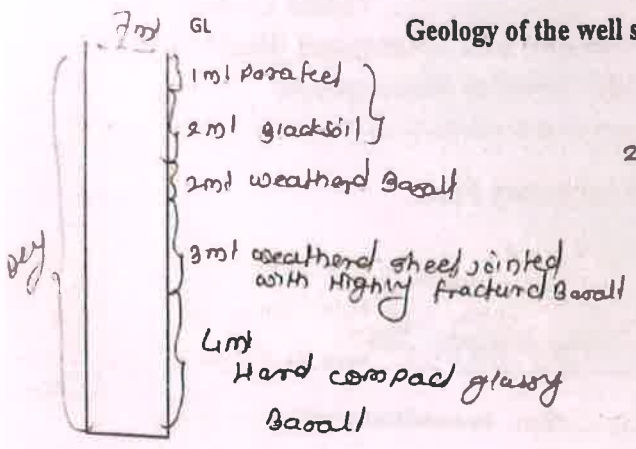 7mt GL Geology of the well s
1mt Parafeet
2mt Blacksoil
2
2mt weatherd Basalt
Dry
3mt weatherd sheet jointed
with Highly fracturd Basalt
4mt
Hard compact glassy
Basalt